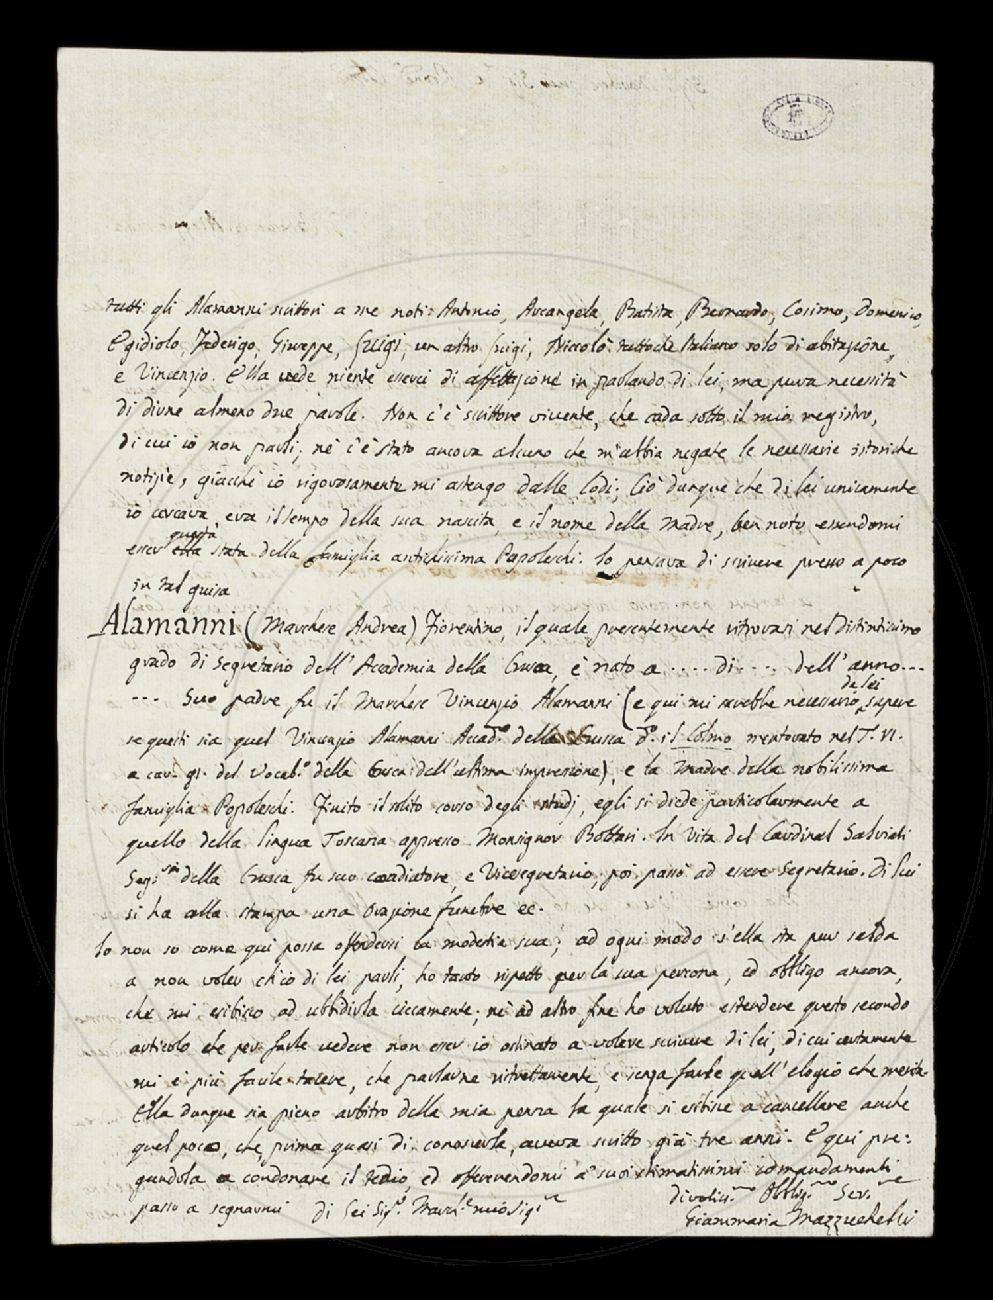 tutti gli Alamanni scrittori a me noti: Antonio, Arcangela, Batista, Bernardo, Cosimo, Domenico,
Egidiolo, Federigo, Giuseppe, Luigi, un altro Luigi, Niccolò tuttochè Italiano solo di abitazione,
e Vincenzio. Ella vede niente esservi di affettazione in parlando di lei, ma pura necessità
di dirne almeno due parole. Non c'è scrittore vivente, che cada sotto il mio registro,
di cui io non parli; nè c'è stato ancora alcuno che m'abbia negate le necessarie istoriche
notizie, giacchè io rigorosamente mi astengo dalle lodi. Ciò dunque che di lei unicamente
io cercava, era il tempo della sua nascita, e il nome della Madre, ben noto essendomi
questa
esser ella stata della famiglia antichissima Popoleschi. Io pensava di scrivere presso a poco
in tal guisa
Alamanni (Marchese Andrea) Fiorentino, il quale presentemente ritrovasi nel distintissimo
grado di Segretario dell'Accademia della Crusca, è nato a ..... di .... dell'anno...
da lei
--- Suo padre fu il Marchese Vincenzio Alamanni (e qui mi sarebbe necessario sapere
se questi sia quel Vincenzio Alamanni Accad.º della Crusca d.º il Colmo mentovato nel T. VI.
a car. 91. del Vocab.º della Crusca dell'ultima impressione), e la Madre della nobilissima
famiglia Popoleschi. Finito il solito corso degli studj, egli si diede particolarmente a
quello della lingua Toscana appresso Monsignor Bottari. In vita del Cardinal Salviati
Segr. della Crusca fu suo coadiutore, e Vicesegretario, poi passò ad essere Segretario. Di lui
si ha alla stampa una Orazione funebre ec.
Io non so come qui possa offendersi la modestia sua; ad ogni modo s'ella sta pur salda
a non voler ch'io di lei parli, ho tanto rispetto per la sua persona, ed obbligo ancora,
che mi esibisco ad ubbidirla ciecamente; nè ad altro fine ho voluto estendere questo secondo
articolo che per farle vedere non esser io ostinato a volere scrivere di lei, di cui certamente
mi è più facile tacere, che parlarne ristrettamente, e senza farle quell'elogio che merita.
Ella dunque sia pieno arbitro della mia penna la quale si esibisce a cancellare anche
quel poco, che, prima quasi di conoscerla, aveva scritto già tre anni. E qui pre=
gandola a condonare il tedio, ed offerendomi a' suoi stimatissimi comandamenti
passo a segnarmi di Lei Sig.r March.e mio Sig.re
divotiss.mo Obblig.mo Serv.re
Giammaria Mazzuchelli